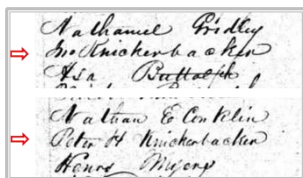 Nathaniel Pridley
Jno Knickerbacker
Asa Buttolph
Nathan E Conklin
Peter H Knickerbacker
Henry Myers